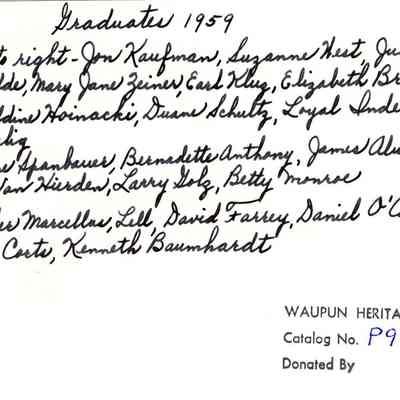 Graduates 1959
to right - Jon Kaufman, Suzanne West, Ju
lde, Mary Jane Zeiner, Earl Klug, Elizabeth Br
ldine Hoinacki, Duane Schultz, Loyal Inde
lig
ne Spanbauer, Bernadette Anthony, James Alu
Van Hierden, Larry Golz, Betty Monroe
er Marcellus, Lell, David Farrey, Daniel O'C
Corts, Kenneth Baumhardt
WAUPUN HERITA
Catalog No. P9
Donated By